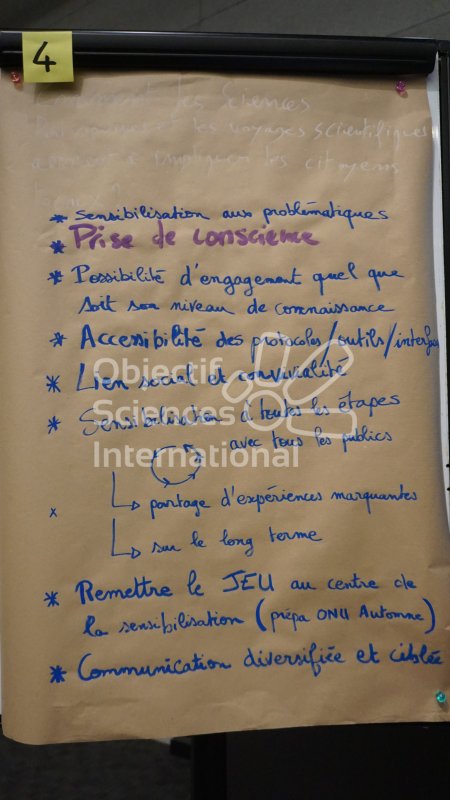 4
Comment les Sciences
Participatives et les voyages scientifiques
à impliquer les citoyens
* sensibilisation aux problématiques
* Prise de conscience
* Possibilité d'engagement quel que
soit son niveau de connaissance
* Accessibilité des protocoles/outils/interfaces
* Lien social et convivialité
* Sensibilisation à toutes les étapes
avec tous les publics
x ↳ partage d'expériences marquantes
↳ sur le long terme
* Remettre le JEU au centre de
la sensibilisation (prépa ONU Automne)
* Communication diversifiée et ciblée
Objectif
Sciences
International